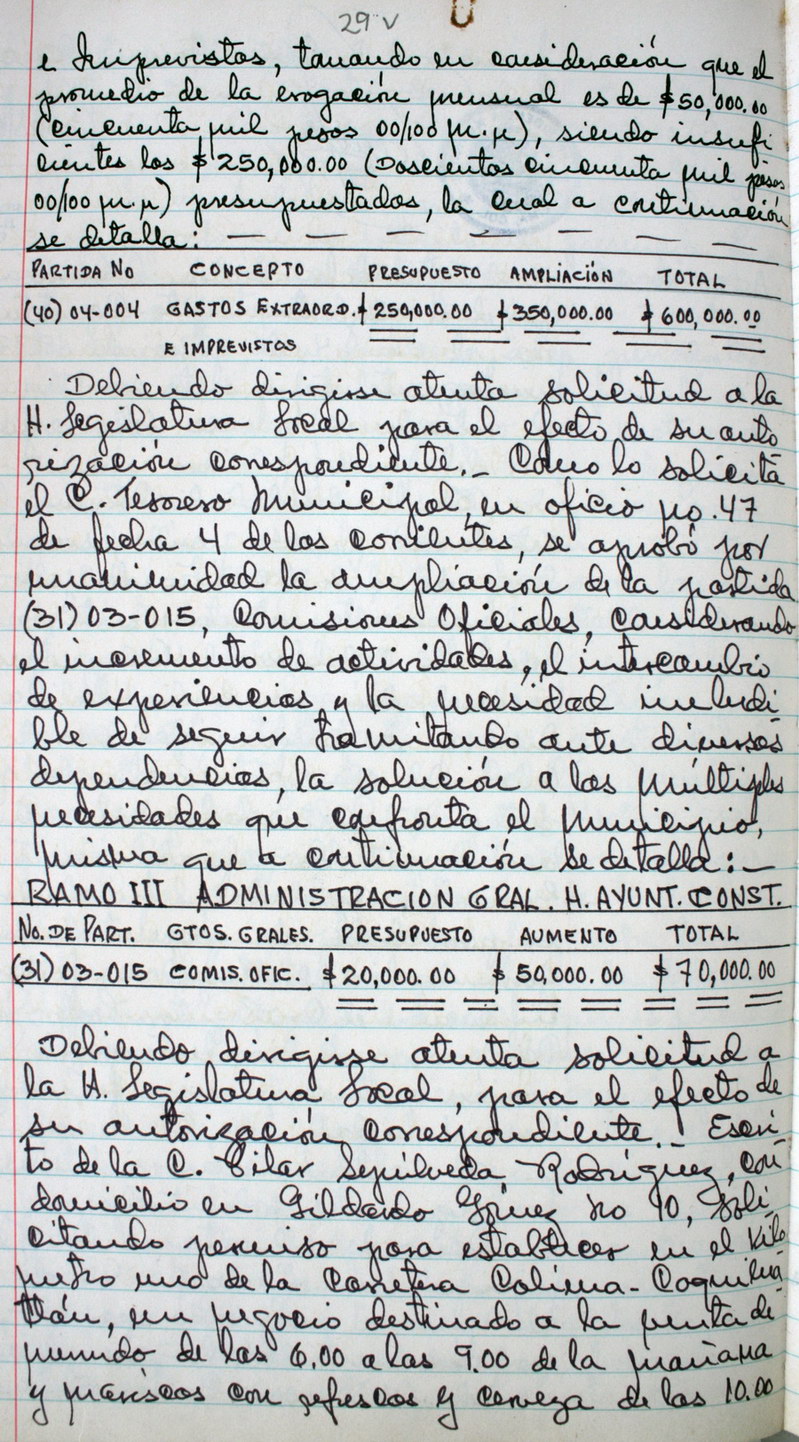 29 v
e Imprevistos, tomando en consideración que el
promedio de la erogación mensual es de $50,000.00
(cincuenta mil pesos 00/100 m.n), siendo insufi
cientes los $250,000.00 (Doscientos cincuenta mil pesos
00/100 m.n) presupuestados, la cual a continuación
se detalla: — — — — — — — —
PARTIDA No CONCEPTO PRESUPUESTO AMPLIACIÓN TOTAL
(40) 04-004 GASTOS EXTRAORD. $250,000.00 $350,000.00 $600,000.00
E IMPREVISTOS
Debiendo dirigirse atenta solicitud a la
H. Legislatura Local para el efecto de su auto
rización correspondiente._ Como lo solicita
el C. Tesorero Municipal, en oficio no. 47
de fecha 4 de los corrientes, se aprobó por
unanimidad la ampliación de la partida
(31) 03-015, Comisiones Oficiales, considerando
el incremento de actividades, el intercambio
de experiencias y la necesidad ineludi
ble de seguir tramitando ante diversas
dependencias, la solución a las múltiples
necesidades que confronta el municipio,
misma que a continuación se detalla:—
RAMO III ADMINISTRACION GRAL. H. AYUNT. CONST.
No. DE PART. GTOS. GRALES. PRESUPUESTO AUMENTO TOTAL
(31) 03-015 COMIS. OFIC. $20,000.00 $50,000.00 $70,000.00
Debiendo dirigirse atenta solicitud a
la H. Legislatura Local, para el efecto de
su autorización correspondiente._ Escri
to de la C. Pilar Sepúlveda Rodríguez, con
domicilio en Gildardo Gómez No 10, soli
citando permiso para establecer en el kiló
metro uno de la carretera Colima-Coquima
tlán, un negocio destinado a la venta de
menudo de las 6.00 a las 9.00 de la mañana
y mariscos con refrescos y cerveza de las 10.00